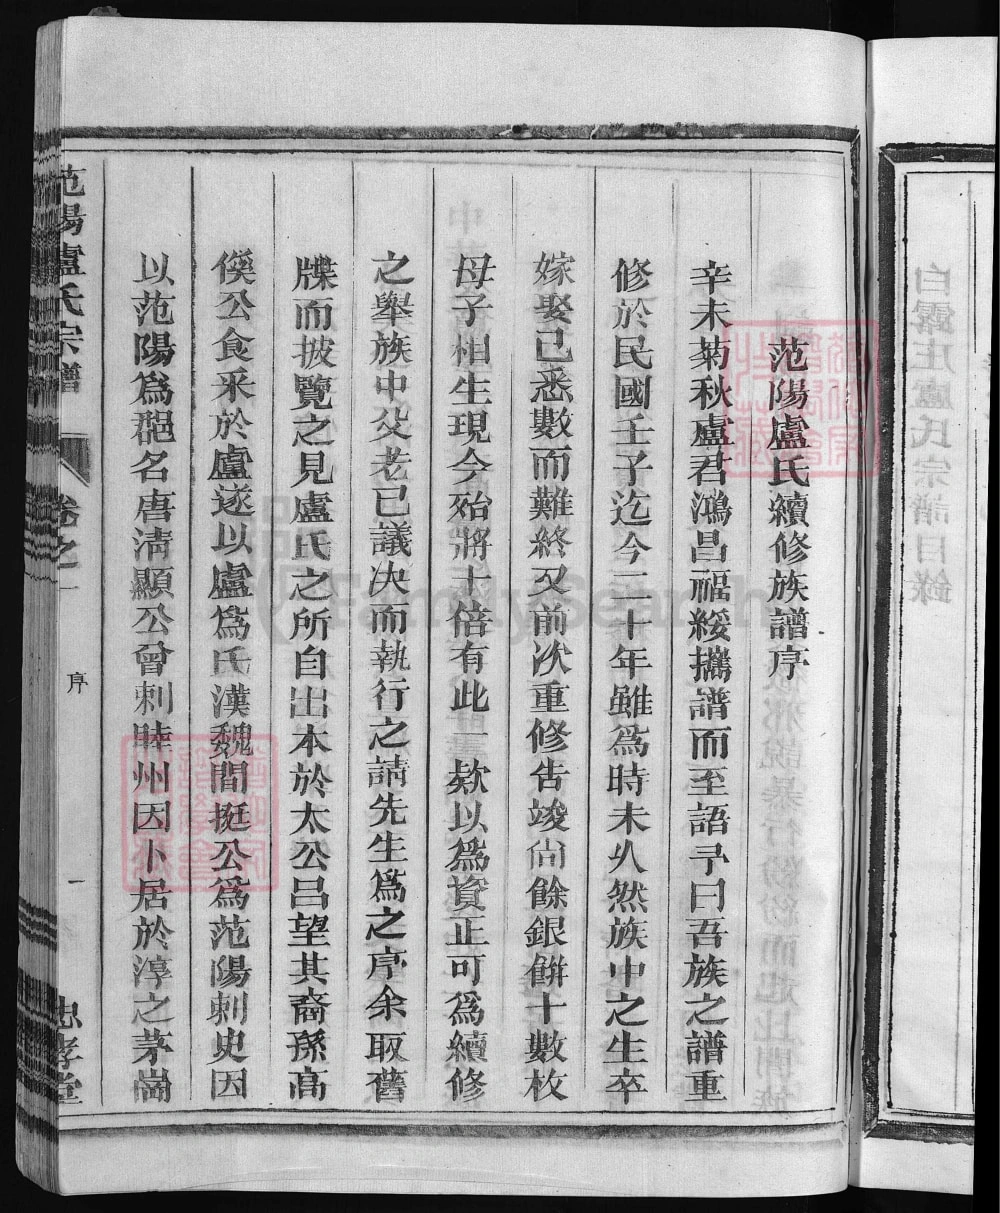 范陽盧氏續修族譜序
辛未菊秋盧君鴻昌福綏攜譜而至語予曰吾族之譜重
修於民國壬子迄今二十年雖爲時未久然族中之生卒
嫁娶已悉數而難終又前次重修告竣尚餘銀餅十數枚
母子相生現今殆將十倍有此一欵以爲資正可爲續修
之舉族中父老已議決而執行之請先生爲之序余取舊
牒而披覽之見盧氏之所自出本於太公呂望其裔孫高
傒公食釆於盧遂以盧爲氏漢魏間挺公爲范陽刺史因
以范陽爲郡名唐淸顯公曾刺睦州因卜居於淳之茅崗
范陽盧氏宗譜
卷之一
序
一
忠孝堂
FamilySearch